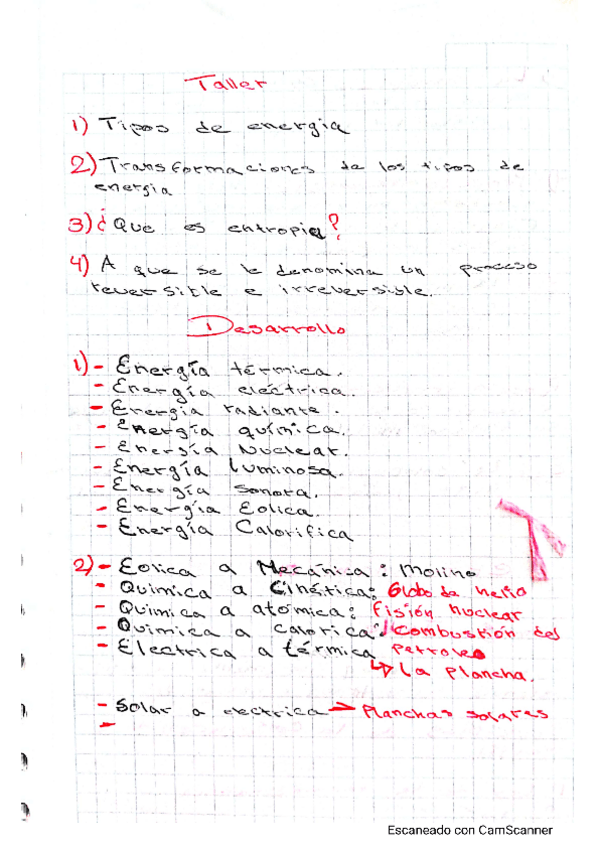 Taller
1) Tipos de energia
2) Transformaciones de los tipos de
energia
3) ¿Que es entropia?
4) A que se le denomina un proceso
reversible e irreversible.
Desarrollo
1) - Energía térmica.
- Energía eléctrica.
- Energia radiante.
- Energía química.
- Energía Nuclear.
- Energía luminosa.
- Energía sonora.
- Energía Eolica.
- Energía Calorifica
2) - Eolica a Mecánica: Molino
- Quimica a Cinética: Globo de helio
- Quimica a atómica: Fisión nuclear
- Quimica a calorica: Combustión del
- Electrica a térmica Petroleo
↳ La plancha.
- Solar a electrica → Planchas solares
-
Escaneado con CamScanner